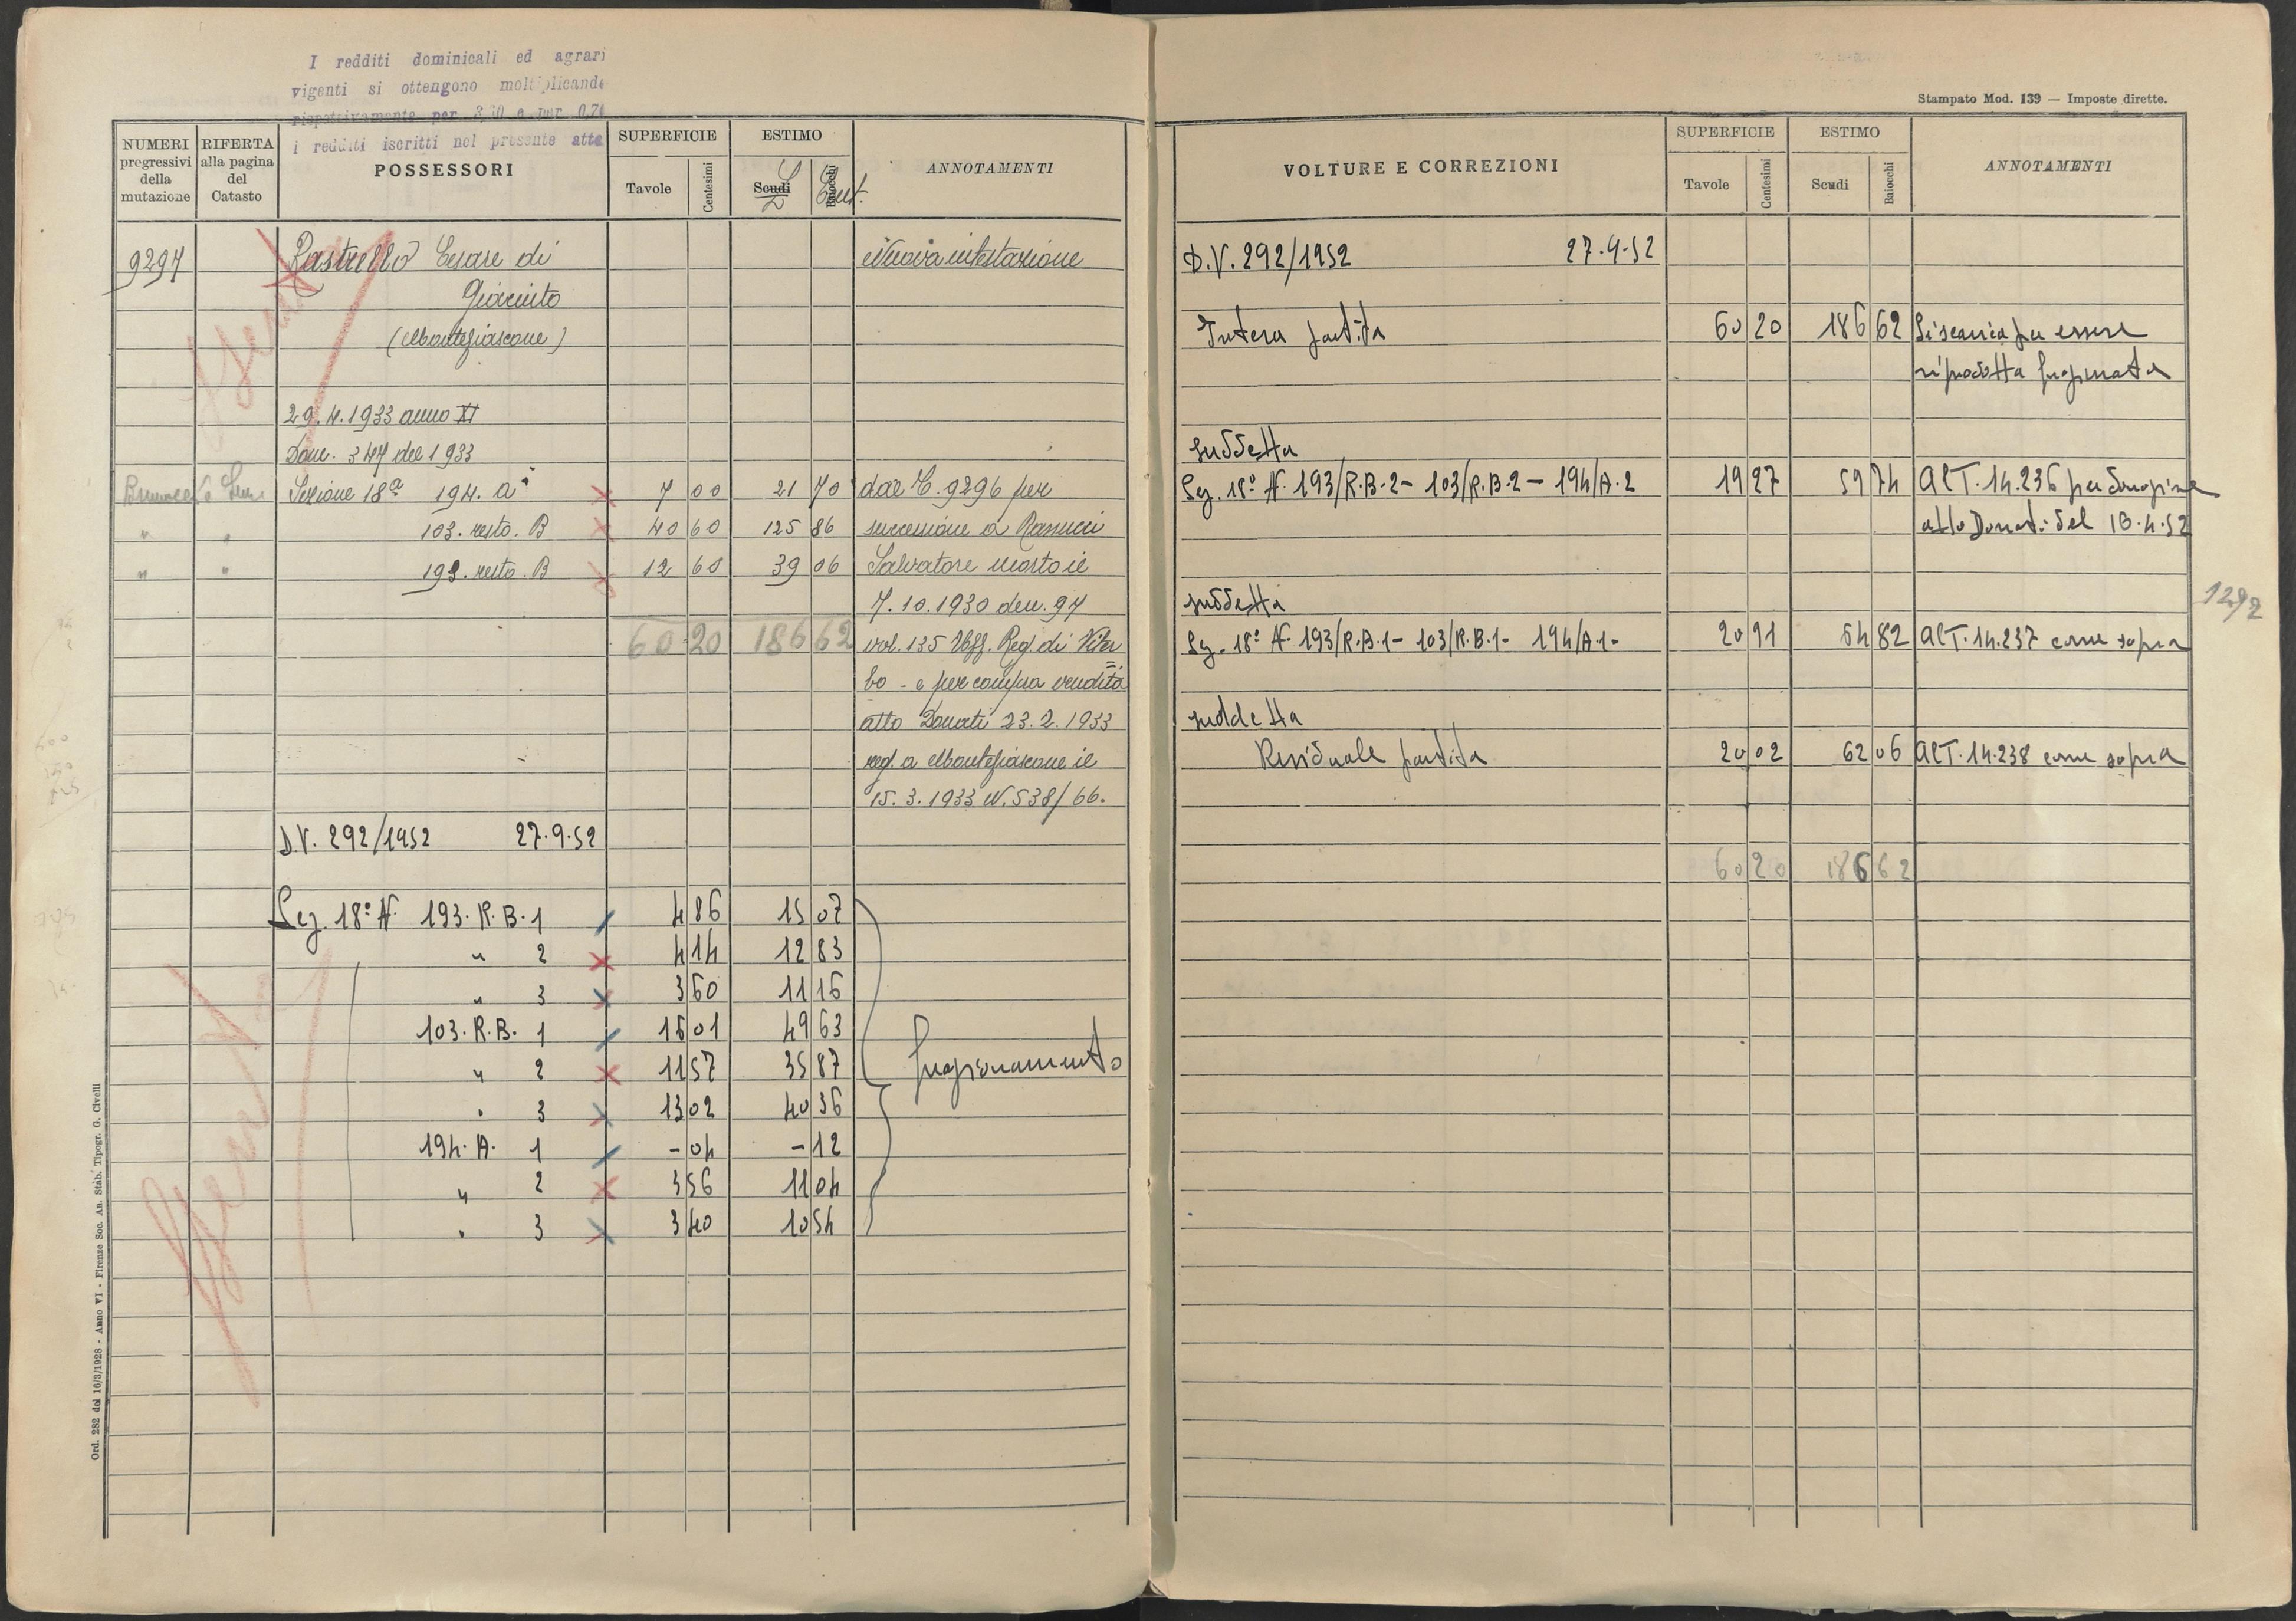 I redditi dominicali ed agrari
vigenti si ottengono moltiplicande
rispettivamente per 3.30 e per 0,70
i redditi iscritti nel presente atto
NUMERI progressivi della mutazione
RIFERTA alla pagina del Catasto
POSSESSORI
SUPERFICIE
Tavole
Centesimi
ESTIMO
Scudi L
Baiocchi Cent.
ANNOTAMENTI
9297 Rastrello Cesare di Nuova intestazione
Giacinto
(Montefiascone)
29.4.1933 anno XI
Dom. 347 del 1933
Sezione 18ª 194. A 7 00 21 70 dal C. 9296 per
" " 103. resto. B 40 60 125 86 successione a Ranucci
" " 193. resto. B 12 60 39 06 Salvatore morto il
7.10.1930 den. 97
60 20 186 62 vol. 135 Uff. Reg. di Viter
bo - e per compra vendita
atto Donati 23.2.1933
reg. a Montefiascone il
15.3.1933 N. 538/66.
D.V. 292/1952 27.9.52
Sez. 18ª N. 193. R. B. 1 4 86 15 07
" 2 4 14 12 83
" 3 3 60 11 16
103. R. B. 1 16 01 49 63
" 2 11 57 35 87 frazionamento
" 3 13 02 40 36
194. A. 1 - 04 - 12
" 2 3 56 11 04
" 3 3 40 10 54
Ord. 282 del 16/3/1928 - Anno VI - Firenze Soc. An. Stab. Tipogr. G. Civelli
Stampato Mod. 139 — Imposte dirette.
VOLTURE E CORREZIONI
SUPERFICIE
Tavole
Centesimi
ESTIMO
Scudi
Baiocchi
ANNOTAMENTI
D.V. 292/1952 27.9.52
Intera partita 60 20 186 62 Si scarica per essere
riprodotta frazionata
suddetta
Sez. 18ª N. 193/R.B.2 - 103/R.B.2 - 194/A.2 19 27 59 74 all T. 14.236 per donazione
atto Donati del 18.4.52
suddetta
1292
Sez. 18ª N. 193/R.B.1 - 103/R.B.1 - 194/A.1 - 20 91 64 82 all T. 14.237 come sopra
suddetta
Residuale partita 20 02 62 06 all T. 14.238 come sopra
60 20 186 62